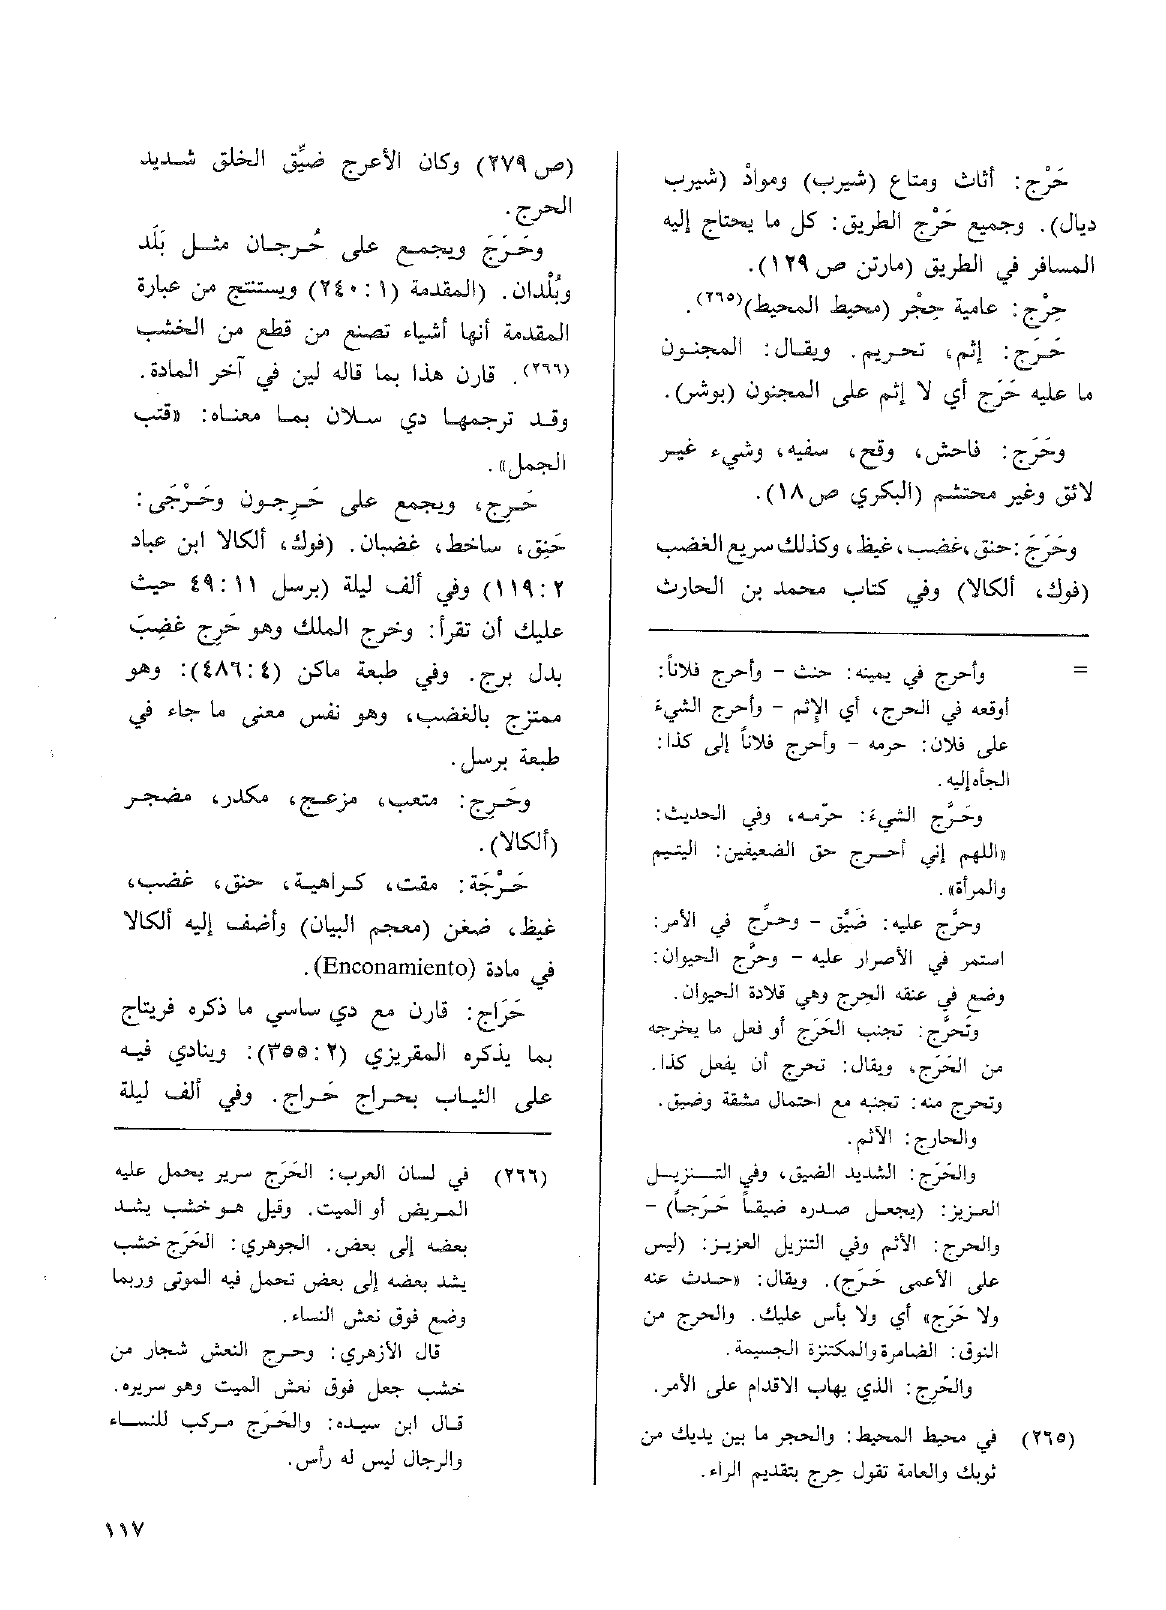 حَرْج: أثاث ومتاع (شيرب) وموادْ (شيرب
ديال). وجميع حَرْج الطريق: كل ما يحتاج إليه
المسافر في الطريق (مارتن ص ١٢٩).
حِرْج: عامية حِجْر (محيط المحيط)(٢٦٥).
حَرَج: إثم، تحريم. ويقال: المجنون
ما عليه حَرَج أي لا إثم على المجنون (بوشر).
وحَرَج: فاحش، وقح، سفيه، وشيء غير
لائق وغير محتشم (البكري ص ١٨).
وحَرَجَ: حنق، غضب، غيظ، وكذلك سريع الغضب
(فوك، ألكالا) وفي كتاب محمد بن الحارث
(ص ٢٧٩) وكان الأعرج ضيِّق الخلق شديد
الحرج.
وحَرَجَ ويجمع على حُرجان مثل بَلَد
وبُلْدان. (المقدمة (١: ٢٤٠) ويستنتج من عبارة
المقدمة أنها أشياء تصنع من قطع من الخشب
(٢٦٦). قارن هذا بما قاله لين في آخر المادة.
وقد ترجمها دي سلان بما معناه: «قتب
الجمل».
حَرِج، ويجمع على حَرِجون وحَرْجَى:
حَنِق، ساخط، غضبان. (فوك، ألكالا ابن عباد
٢: ١١٩) وفي ألف ليلة (برسل ١١: ٤٩ حيث
عليك أن تقرأ: وخرج الملك وهو حَرِج غضِبَ
بدل برج. وفي طبعة ماكن (٤: ٤٨٦): وهو
ممتزج بالغضب، وهو نفس معنى ما جاء في
طبعة برسل.
وحَرِج: متعب، مزعج، مكدر، مضجر
(ألكالا).
حَرْجَة: مقت، كراهية، حنق، غضب،
غيظ، ضغن (معجم البيان) وأضف إليه ألكالا
في مادة (Enconamiento).
حَرَاج: قارن مع دي ساسي ما ذكره فريتاج
بما يذكره المقريزي (٢: ٣٥٥): وينادي فيه
على الثياب بحراج حَراج. وفي ألف ليلة
= وأحرج في يمينه: حنث - وأحرج فلاناً:
أوقعه في الحرج، أي الإثم - وأحرج الشيءَ
على فلان: حرمه - وأحرج فلاناً إلى كذا:
الجأه إليه.
وحَرَّج الشيءَ: حرّمه، وفي الحديث:
«اللهم إني أحرج حق الضعيفين: اليتيم
والمرأة».
وحرَّج عليه: ضَيَّق - وحرَّج في الأمر:
استمر في الأصرار عليه - وحرَّج الحيوان:
وضع في عنقه الحرج وهي قلادة الحيوان.
وتَحرَّج: تجنب الحَرَج أو فعل ما يخرجه
من الحَرَج، ويقال: تحرج أن يفعل كذا.
وتحرج منه: تجنبه مع احتمال مشقة وضيق.
والحارج: الآثم.
والحَرَج: الشديد الضيق، وفي التنزيل
العزيز: (يجعل صدره ضيقاً حَرَجاً) -
والحرج: الأثم وفي التنزيل العزيز: (ليس
على الأعمى حَرَج). ويقال: «حدث عنه
ولا حَرَج» أي ولا بأس عليك. والحرج من
النوق: الضامرة والمكتنزة الجسيمة.
والحَرِج: الذي يهاب الاقدام على الأمر.
(٢٦٥) في محيط المحيط: والحجر ما بين يديك من
ثوبك والعامة تقول حِرج بتقديم الراء.
(٢٦٦) في لسان العرب: الحَرَج سرير يحمل عليه
المريض أو الميت. وقيل هو خشب يشد
بعضه إلى بعض. الجوهري: الحَرَج خشب
يشد بعضه إلى بعض تحمل فيه الموتى وربما
وضع فوق نعش النساء.
قال الأزهري: وحرج النعش شجار من
خشب جعل فوق نعش الميت وهو سريره.
قال ابن سيده: والحَرَج مركب للنساء
والرجال ليس له رأس.
١١٧